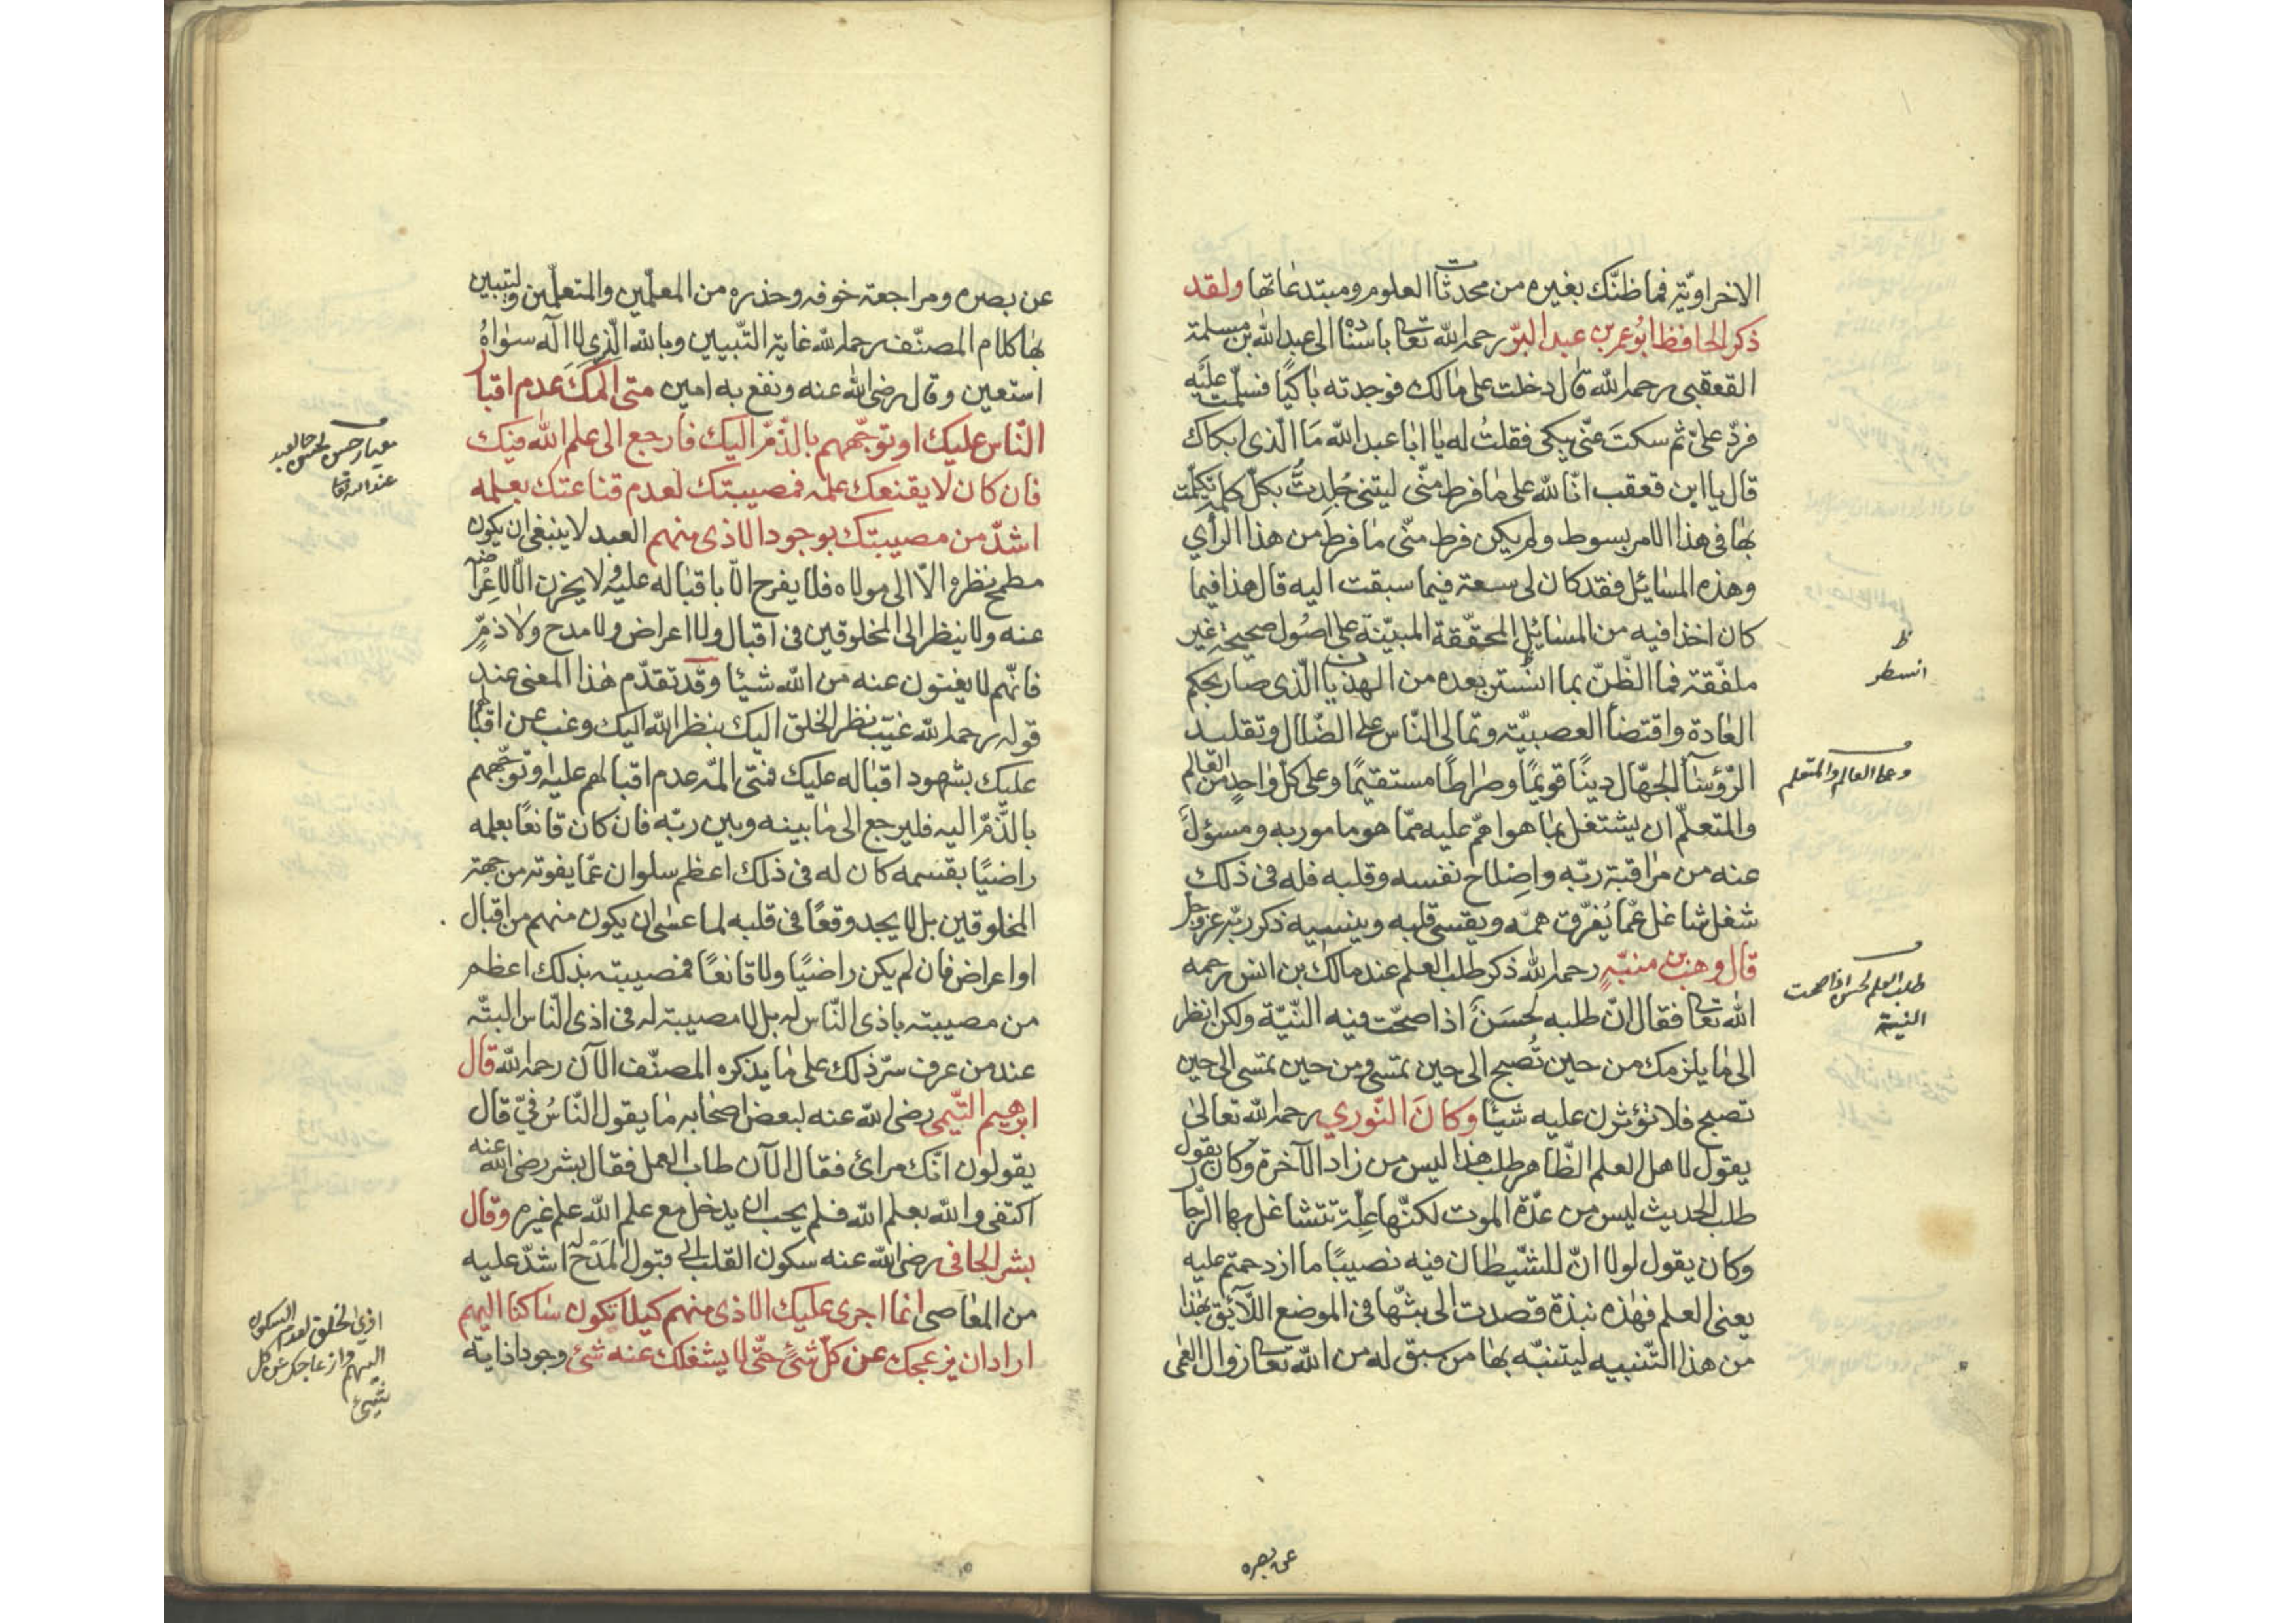 الاخراويّة فما ظنّك بغيره من محدثات العلوم ومبتدعاتها ولقد
ذكر الحافظ ابو عمر بن عبد البرّ رحمه الله تعا باسناده الى عبد الله بن مسلمة
القعقبى رحمه الله قال دخلت على مالك فوجدته باكيًا فسلّمت عليه
فردّ علىّ ثم سكت عنّى يبكى فقلت له يا ابا عبد الله ما الّذى ابكاك
قال يا ابن قعقب انّا لله على ما فرط منّى ليتنى جُلِدتُ بكلّ كلمة تكلّمت
بها فى هذا الامر بسوط ولم يكن فرط منّى ما فرط من هذا الرأي
وهذه المسائل فقد كان لى سعة فيما سبقت اليه قال هذا فيما
كان اخذا فيه من المسائل المحقّقة المبيّنة على اصول صحيحة غير
ملفّقة فما الظّنّ بما استن بعده من الهذيان الّذى صار بحكم
العادة واقتضا العصبيّة وتمالى النّاس على الضّلال وتقليد
الرّؤسآ الجهّال دينًا قويمًا وصراطًا مستقيمًا وعلى كلّ واحد من العالم
والمتعلّم ان يشتغل بما هو اهمّ عليه ممّا هو مامور به ومسؤل
عنه من مراقبة ربّه واصلاح نفسه وقلبه فله فى ذلك
شغل شاغل عمّا يُفرّق همّه ويقسى قلبه وينسيه ذكر ربّه عزوجل
قال وهب بن منبّه رحمه الله ذكر طلب العلم عند مالك بن انس رحمه
الله تعا فقال انّ طلبه لحسن اذا صحّت فيه النّيّة ولكن انظر
الى ما يلزمك من حين تُصبح الى حين تمسى ومن حين تمسى الى حين
تصبح فلا تؤثرن عليه شيئًا وكان النّوري رحمه الله تعالى
يقول لاهل العلم الظّاهر طلب هذا ليس من زاد الآخرة وكان يقول
طلب الحديث ليس من عدّة الموت لكنّها علّة تتشاغل بها الرّجا
وكان يقول لولا انّ للشّيطان فيه نصيبًا ما ازدحمتم عليه
يعنى العلم فهذه نبذة قصدت الى بثّها فى الموضع اللّائق بهذا
من هذا التّنبيه ليتنبّه بها من سبق له من الله تعا زوال العمى
انسطر
وعلى العالم والمتعلم
طلب العلم لحسن اذا صحت
النية
عن بصره
عن بصره ومراجعة خوفه وحذره من المعلّمين والمتعلّمين ولتبيين
بها كلام المصنّف رحمه الله غاية التّبيين وبالله الّذى لا اله سواه
استعين وقال رضى الله عنه ونفع به امين متى المك عدم اقبال
النّاس عليك او توجّههم بالذّمّ اليك فارجع الى علم الله فيك
فان كان لا يقنعك علمه فمصيبتك لعدم قناعتك بعلمه
اشدّ من مصيبتك بوجود الاذى منهم العبد لا ينبغى ان يكون
مطمح نظره الّا الى مولاه فلا يفرح الّا باقباله عليه ولا يحزن الّا لاعراضه
عنه ولا ينظر الى المخلوقين فى اقبال ولا اعراض ولا مدح ولا ذمّ
فانّهم لا يغنون عنه من الله شيئا وقد تقدّم هذا المعنى عند
قوله رحمه الله غيّب نظر الخلق اليك بنظر الله اليك وغب عن اقبالهم
عليك بشهود اقباله عليك فمتى المّه عدم اقبالهم عليه وتوجّههم
بالذّمّ اليه فليرجع الى ما بينه وبين ربّه فان كان قانعًا بعلمه
راضيًا بقسمه كان له فى ذلك اعظم سلوان عمّا يفوته من جهة
المخلوقين بل لا يجد وقعًا فى قلبه لما عسى ان يكون منهم من اقبال
او اعراض فان لم يكن راضيًا ولا قانعًا فمصيبته بذلك اعظم
من مصيبته باذى النّاس له بل لا مصيبة له فى اذى النّاس البتّه
عند من عرف سرّ ذلك على ما يذكره المصنّف الآن رحمه الله قال
ابرهيم التّيمى رضى الله عنه لبعض اصحابه ما يقول النّاس فىّ قال
يقولون انّك مرائ فقال الآن طاب العمل فقال بشر رضى الله عنه
اكتفى والله بعلم الله فلم يحب ان يدخل مع علم الله علم غيره وقال
بشر الحافى رضى الله عنه سكون القلب الى قبول المدح اشدّ عليه
من المعاصى انما اجرى عليك الاذى منهم كيلا تكون ساكنا اليهم
اراد ان يزعجك عن كلّ شئ حتّى لا يشغلك عنه شئ وجود اذاية
معيار حسن حال العبد
عند الله تعا
اذى الخلق لعدم السكون
اليهم وازعاجك عن كل
شئ